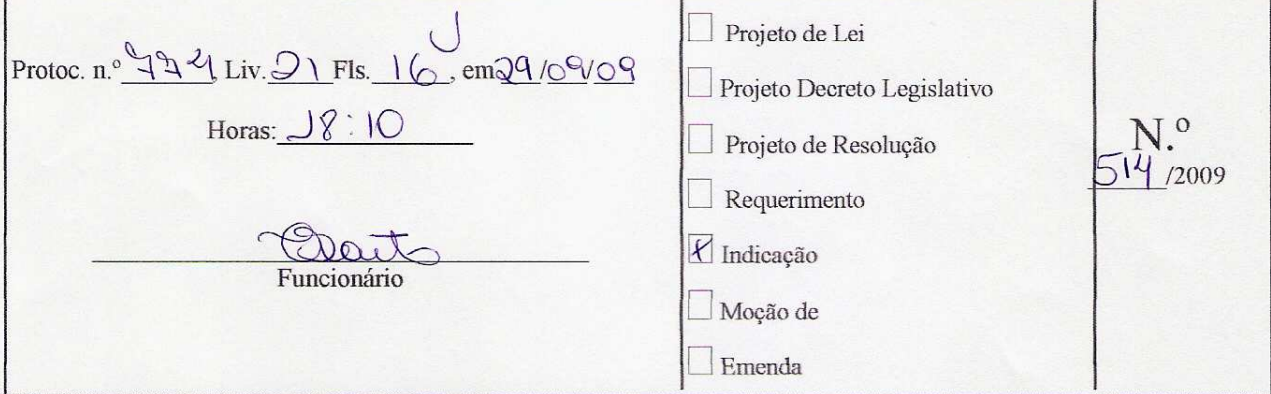 Protoc. n.º 774, Liv. 21 Fls. 16, em 29/09/09
Horas: 18:10
Funcionário
Projeto de Lei
Projeto Decreto Legislativo
Projeto de Resolução
Requerimento
Indicação
Moção de
Emenda
N.º
514/2009